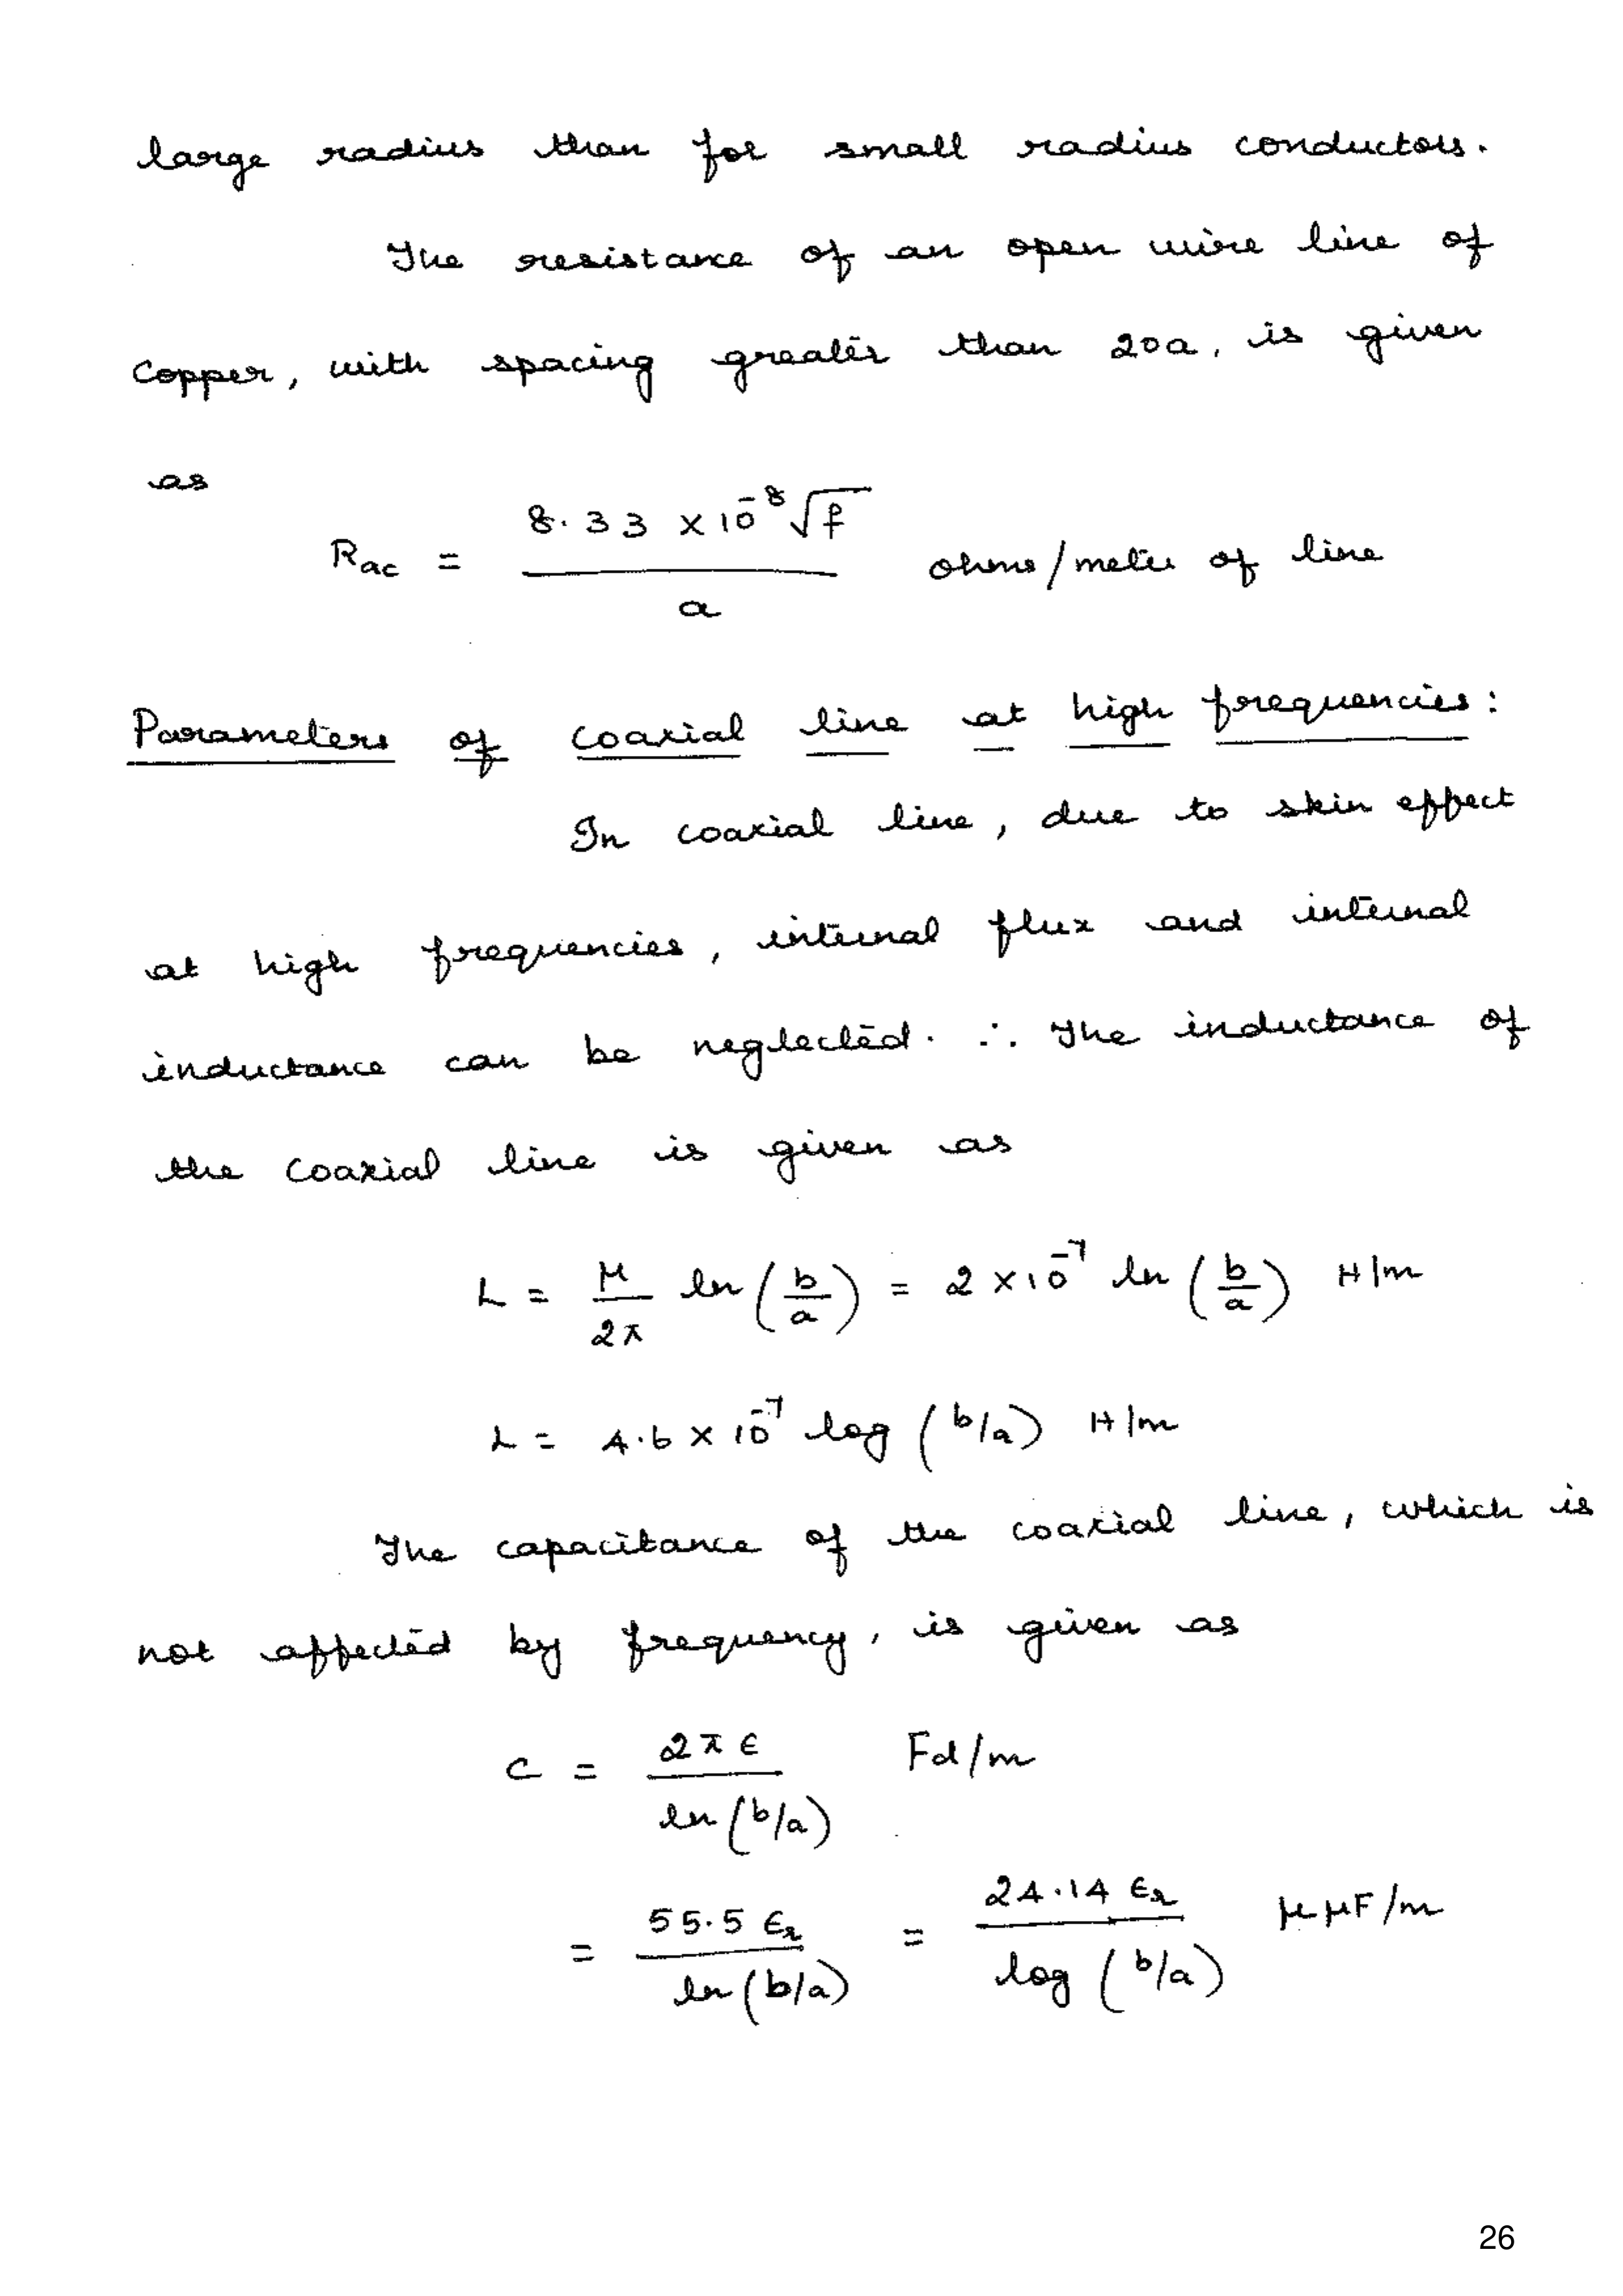 large radius than for small radius conductors.
The resistance of an open wire line of
copper, with spacing greater than 20a, is given
as
Rac = 8.33 × 10⁻⁸ √f / a ohms/meter of line
Parameters of coaxial line at high frequencies:
In coaxial line, due to skin effect
at high frequencies, internal flux and internal
inductance can be neglected. ∴ The inductance of
the coaxial line is given as
L = μ/2π ln (b/a) = 2 × 10⁻⁷ ln (b/a) H/m
L = 4.6 × 10⁻⁷ log (b/a) H/m
The capacitance of the coaxial line, which is
not affected by frequency, is given as
C = 2πϵ / ln (b/a) Fd/m
= 55.5 ϵr / ln (b/a) = 24.14 ϵr / log (b/a) μμF/m
26